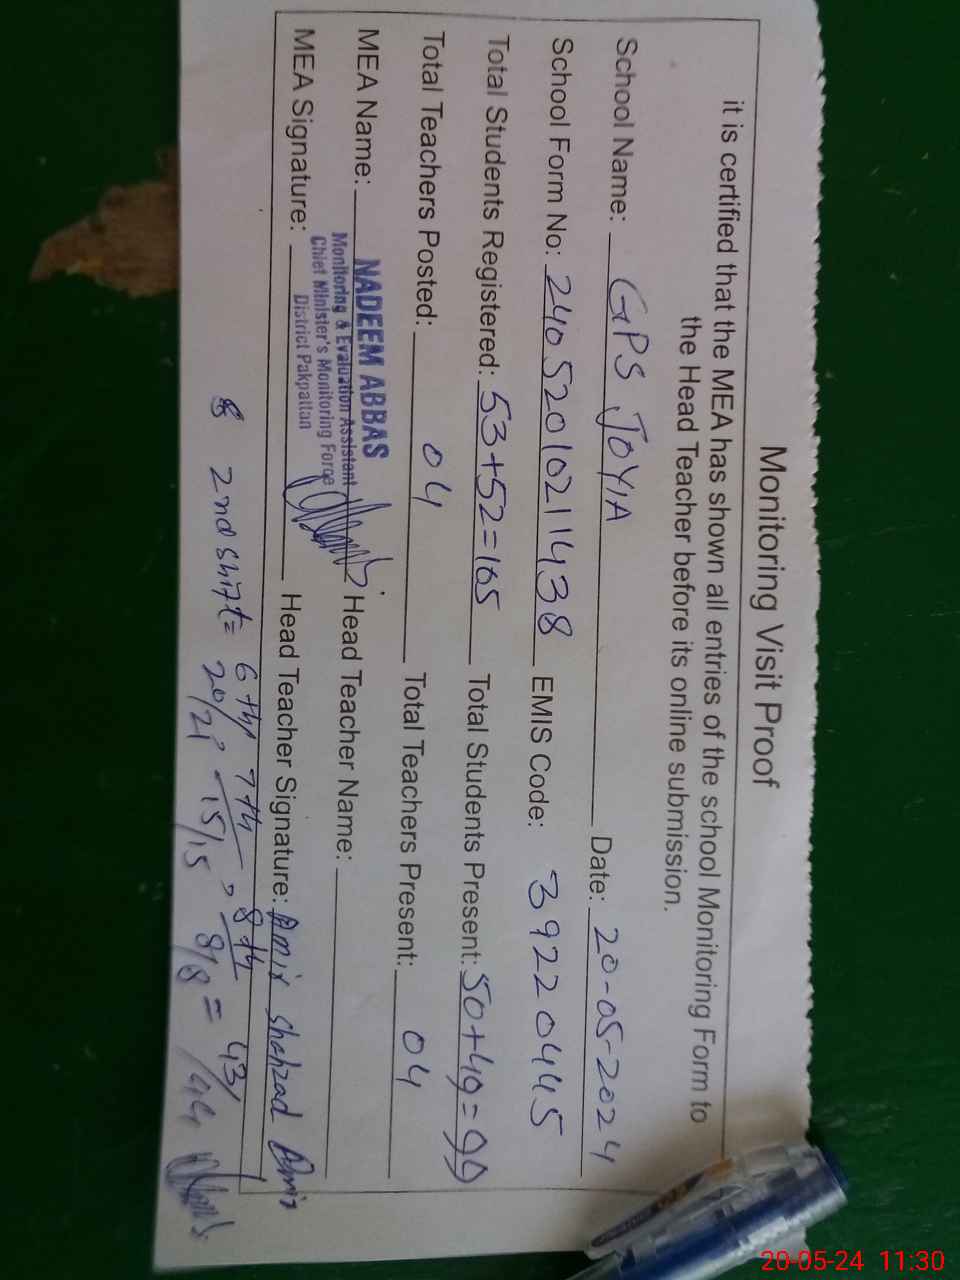 Monitoring Visit Proof
it is certified that the MEA has shown all entries of the school Monitoring Form to
the Head Teacher before its online submission.
School Name: GPS JOYIA Date: 20-05-2024
School Form No: 24052010211438 EMIS Code: 39220445
Total Students Registered: 53+52=105 Total Students Present: 50+49=99
Total Teachers Posted: 04 Total Teachers Present: 04
MEA Name: NADEEM ABBAS Head Teacher Name:
Monitoring & Evaluation Assistant
Chief Minister's Monitoring Force
District Pakpattan
MEA Signature: Head Teacher Signature: Amir Shahzad Amir
2nd shift = 6th, 7th, 8th
20/21, 15/15, 8/8 = 43/44
20-05-24 11:30